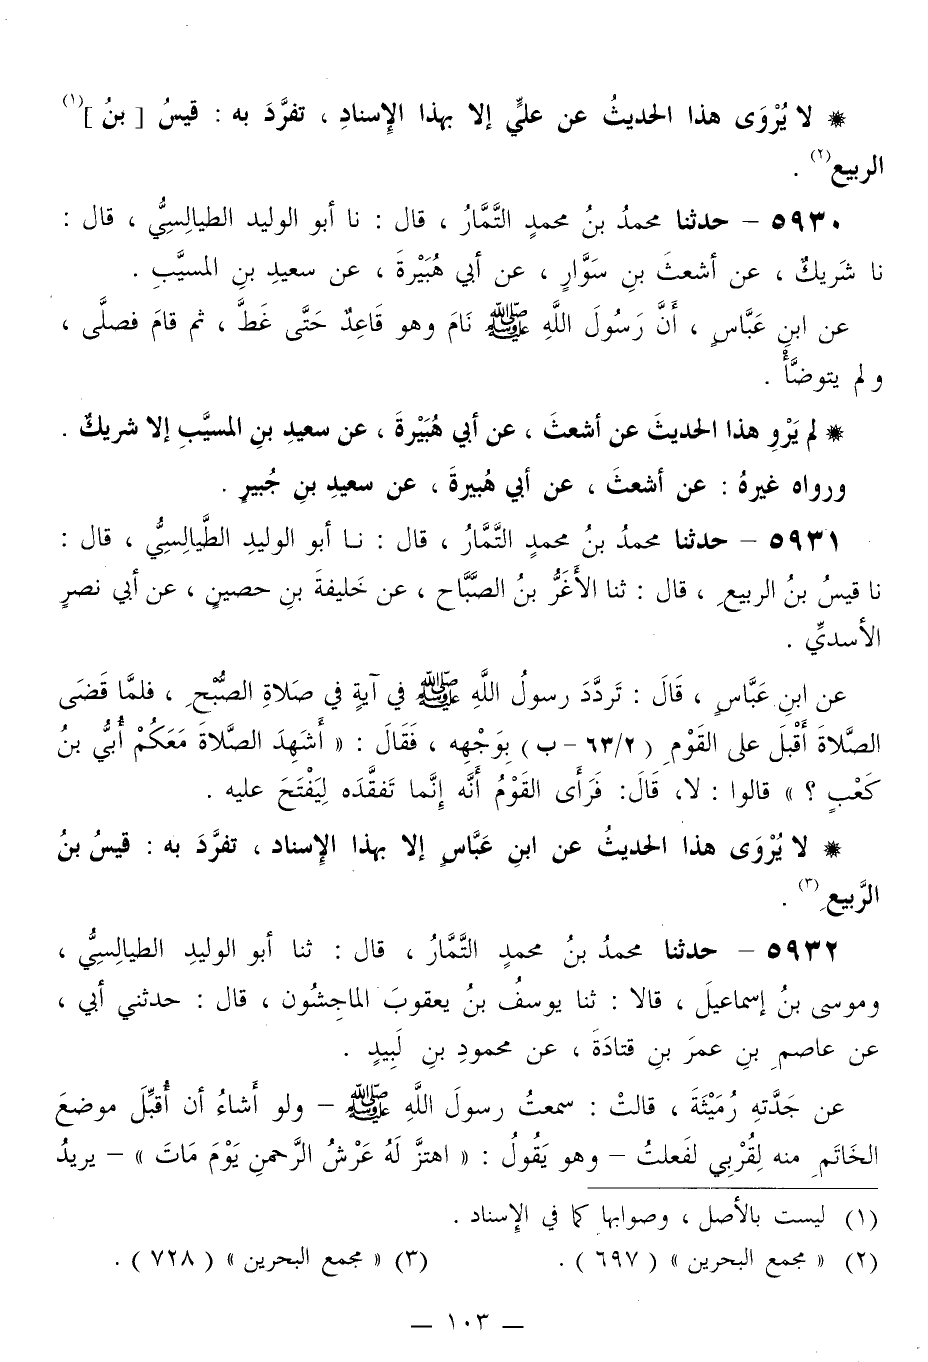 * لا يُرْوَى هذا الحديثُ عن عليٍّ إلا بهذا الإِسنادِ ، تفرَّدَ به : قيسُ [ بنُ ](١)
الربيع(٢) .
٥٩٣٠ – حدثنا محمدُ بنُ محمدٍ التَّمَّارُ ، قال : نا أبو الوليد الطيالِسِيُّ ، قال :
نا شَريكٌ ، عن أشعثَ بنِ سَوَّارٍ ، عن أبي هُبَيْرةَ ، عن سعيدِ بنِ المسيَّبِ .
عن ابنِ عَبَّاسٍ ، أَنَّ رَسُولَ اللَّهِ ﷺ نَامَ وهو قَاعِدٌ حَتَّى غَطَّ ، ثم قامَ فصلَّى ،
ولم يتوضَّأْ .
* لم يَرْوِ هذا الحديثَ عن أشعثَ ، عن أبي هُبَيْرةَ ، عن سعيدِ بنِ المسيَّبِ إلا شريكٌ .
ورواه غيرهُ : عن أشعثَ ، عن أبي هُبيرةَ ، عن سعيدِ بنِ جُبيرٍ .
٥٩٣١ – حدثنا محمدُ بنُ محمدٍ التَّمَّارُ ، قال : نا أبو الوليدِ الطَّيالِسِيُّ ، قال :
نا قيسُ بنُ الربيعِ ، قال : ثنا الأَغَرُّ بنُ الصَّبَّاح ، عن خليفةَ بنِ حصينٍ ، عن أبي نصرٍ
الأسديِّ .
عن ابنِ عَبَّاسٍ ، قَالَ : تَردَّدَ رسولُ اللَّهِ ﷺ في آيةٍ في صَلاةِ الصُّبْحِ ، فلمَّا قَضَى
الصَّلاةَ أَقْبَلَ على القَوْمِ ( ٦٣/٢ – ب ) بِوَجْهِه ، فَقَالَ : « أَشَهِدَ الصَّلاةَ مَعَكُمْ أُبَيُّ بنُ
كَعْبٍ ؟ » قالوا : لا، قَالَ: فَرَأى القَوْمُ أَنَّه إِنَّما تَفقَّدَه لِيَفْتَحَ عليه .
* لا يُرْوَى هذا الحديثُ عن ابنِ عَبَّاسٍ إلا بهذا الإِسناد ، تفرَّدَ به : قيسُ بنُ
الرَّبيعِ(٣) .
٥٩٣٢ – حدثنا محمدُ بنُ محمدٍ التَّمَّارُ ، قال : ثنا أبو الوليدِ الطيالِسِيُّ ،
وموسى بنُ إسماعيلَ ، قالا : ثنا يوسفُ بنُ يعقوبَ الماجِشُون ، قال : حدثني أبي ،
عن عاصمِ بنِ عمرَ بنِ قتادَةَ ، عن محمودِ بنِ لَبِيدٍ .
عن جَدَّتهِ رُمَيْثَةَ ، قالتْ : سمعتُ رسولَ اللَّهِ ﷺ – ولو أَشاءُ أن أُقبِّلَ موضعَ
الخَاتَمِ منه لِقُرْبِي لفَعلتُ – وهو يَقُولُ : « اهتزَّ لَهُ عَرْشُ الرَّحمنِ يَوْمَ مَاتَ » – يريدُ
(١) ليست بالأصل ، وصوابها كما في الإسناد .
(٢) « مجمع البحرين » ( ٦٩٧ ) . (٣) « مجمع البحرين » ( ٧٢٨ ) .
— ١٠٣ —